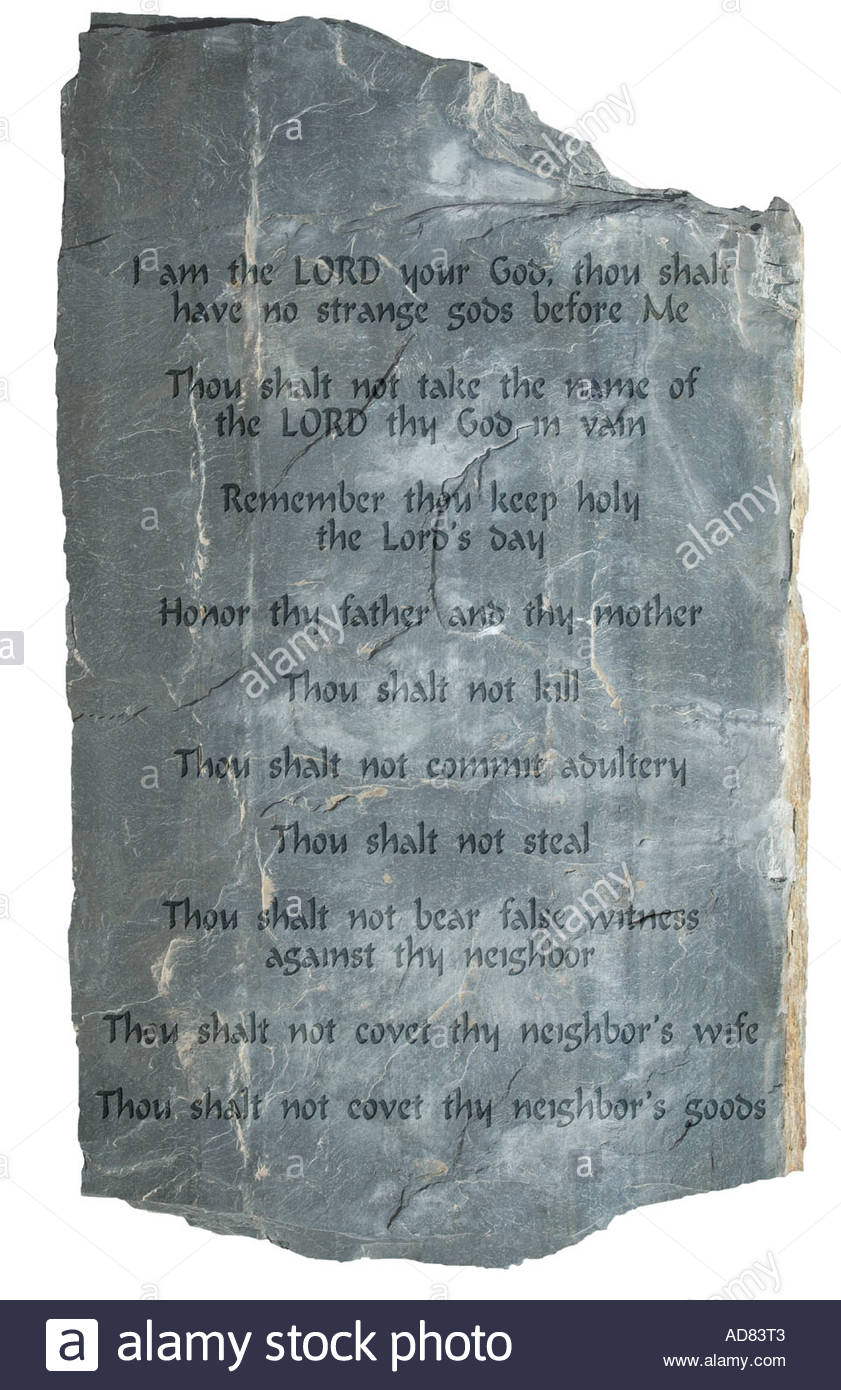 I am the LORD your God, thou shalt
have no strange gods before Me
Thou shalt not take the name of
the LORD thy God in vain
Remember thou keep holy
the Lord's day
Honor thy father and thy mother
Thou shalt not kill
Thou shalt not commit adultery
Thou shalt not steal
Thou shalt not bear false witness
against thy neighbor
Thou shalt not covet thy neighbor's wife
Thou shalt not covet thy neighbor's goods
alamy
alamy
alamy
alamy
alamy
a alamy stock photo
AD83T3
www.alamy.com